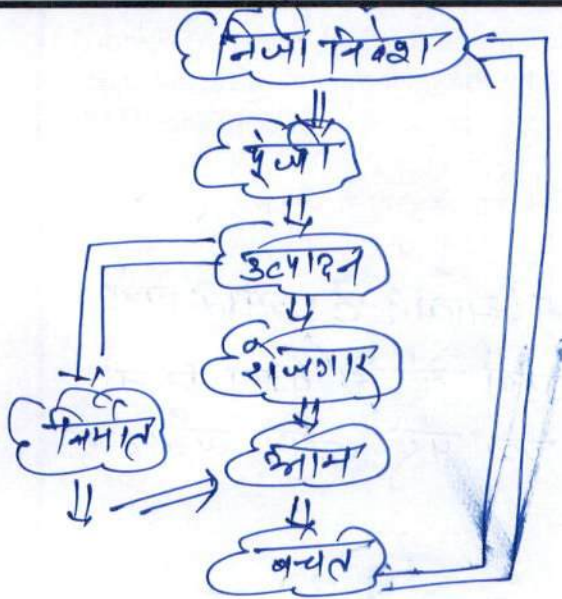 निजी निवेश
पूंजी
उत्पादन
रोजगार
निर्यात
आय
बचत